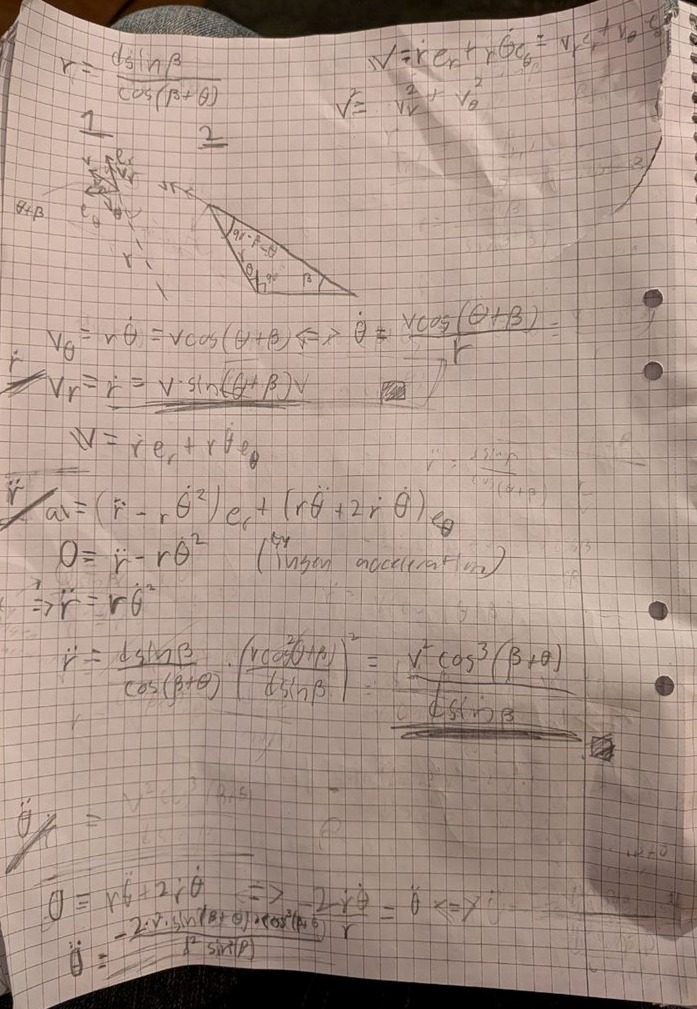 r = d sin β / cos(β+θ)
V = ṙ e_r + r θ̇ e_θ =
V² = V_r² + V_θ²
1 2
θ+β
e_r
e_θ
r
90-β-θ
r
θ
90
β
V_θ = r θ̇ = v cos(θ+β) <=> θ̇ = v cos(θ+β) / r =
ṙ
V_r = ṙ = v · sin(θ+β)
V = ṙ e_r + r θ̇ e_θ
r̈
a = (r̈ - r θ̇²) e_r + (r θ̈ + 2 ṙ θ̇) e_θ
0 = r̈ - r θ̇² (ingen acceleration)
=> r̈ = r θ̇²
r̈ = d sin β / cos(β+θ) · (v cos²(θ+β) / d sin β)² = v² cos³(β+θ) / d sin β
θ̈ =
0 = r θ̈ + 2 ṙ θ̇ <=> -2 ṙ θ̇ / r = θ̈ <=>
θ̈ = -2 · v · sin(β+θ) · cos³(β+θ) / d² sin²(β)